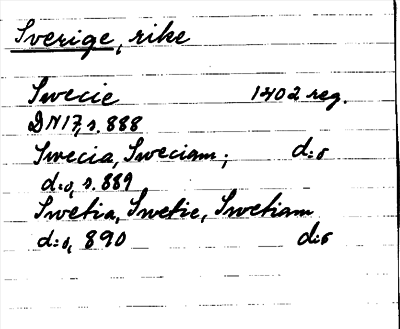 Sverige, rike
Swecie 1402 reg.
DN17, s. 888
Swecia, Sweciam; d:o
d:o, s. 889
Swetia, Swetie, Swetiam
d:o, 890 d:o